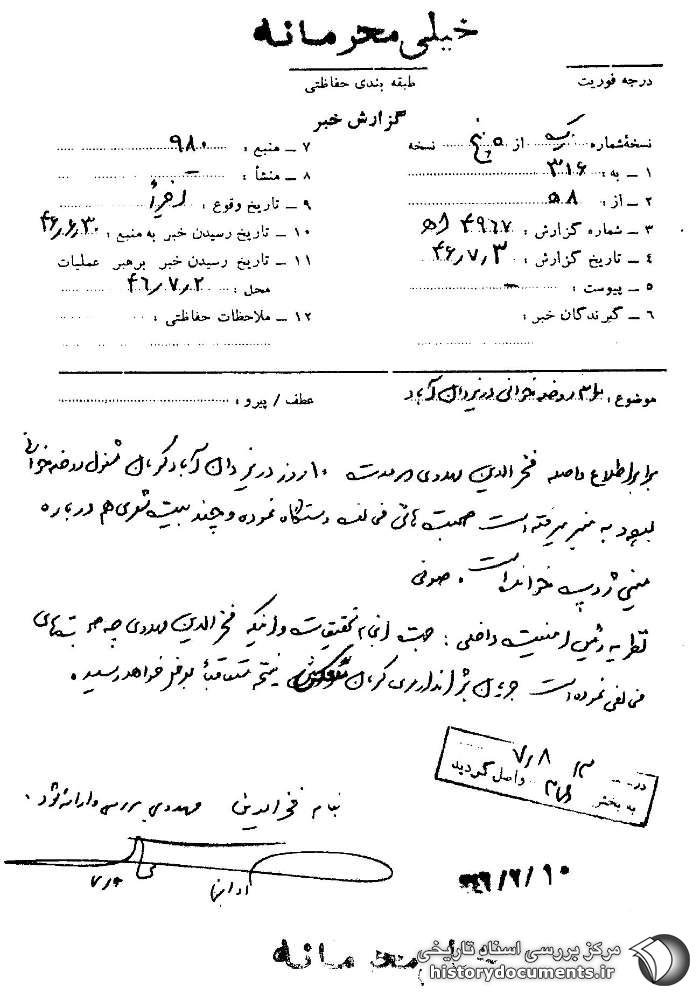 خیلی محرمانه
درجه فوریت
طبقه بندی حفاظتی
گزارش خبر
نسخهٔ شماره یک از ۵ پنج نسخه
۱ – به : ۳۱۶
۲ – از : ۵۸
۳ – شماره گزارش : ۴۹۶۷ / ۵ه‍
۴ – تاریخ گزارش : ۴۶/۷/۳
۵ – پیوست : –
۶ – گیرندگان خبر :
۷ – منبع : ۹۸۰
۸ – منشأ : –
۹ – تاریخ وقوع : اخیراً
۱۰ – تاریخ رسیدن خبر به منبع : ۴۶/۶/۳۰
۱۱ – تاریخ رسیدن خبر برهبر عملیات
محل : ۴۶/۷/۲
۱۲ – ملاحظات حفاظتی :
موضوع : روضه خوانی در یزدان آباد
عطف / پیرو :
برابر اطلاع واصله فخرالدین مهدوی در مدت ۱۰ روز در یزدان آباد کرمان مشغول روضه خوانی
بود به منبر میرفته است صحبت هائی مخالف دستگاه نموده و چند بیت شعری هم در باره
خوانده است . صوفی
نظریه رئیس امنیت داخلی : جهت انجام تحقیقات و اینکه فخرالدین مهدوی چه صحبتهای
مخالفی نموده است جریان بژاندارمری کرمان نتیجه متعاقباً بعرض خواهد رسید .
در ۷/۸
به بخش ۳۱۶ واصل گردید
بنام فخرالدین مهدوی بررسی و ارائه شود .
۷/۹
۳۴۶/۷/۱۰
محرمانه
مرکز بررسی اسناد تاریخی
historydocuments.ir